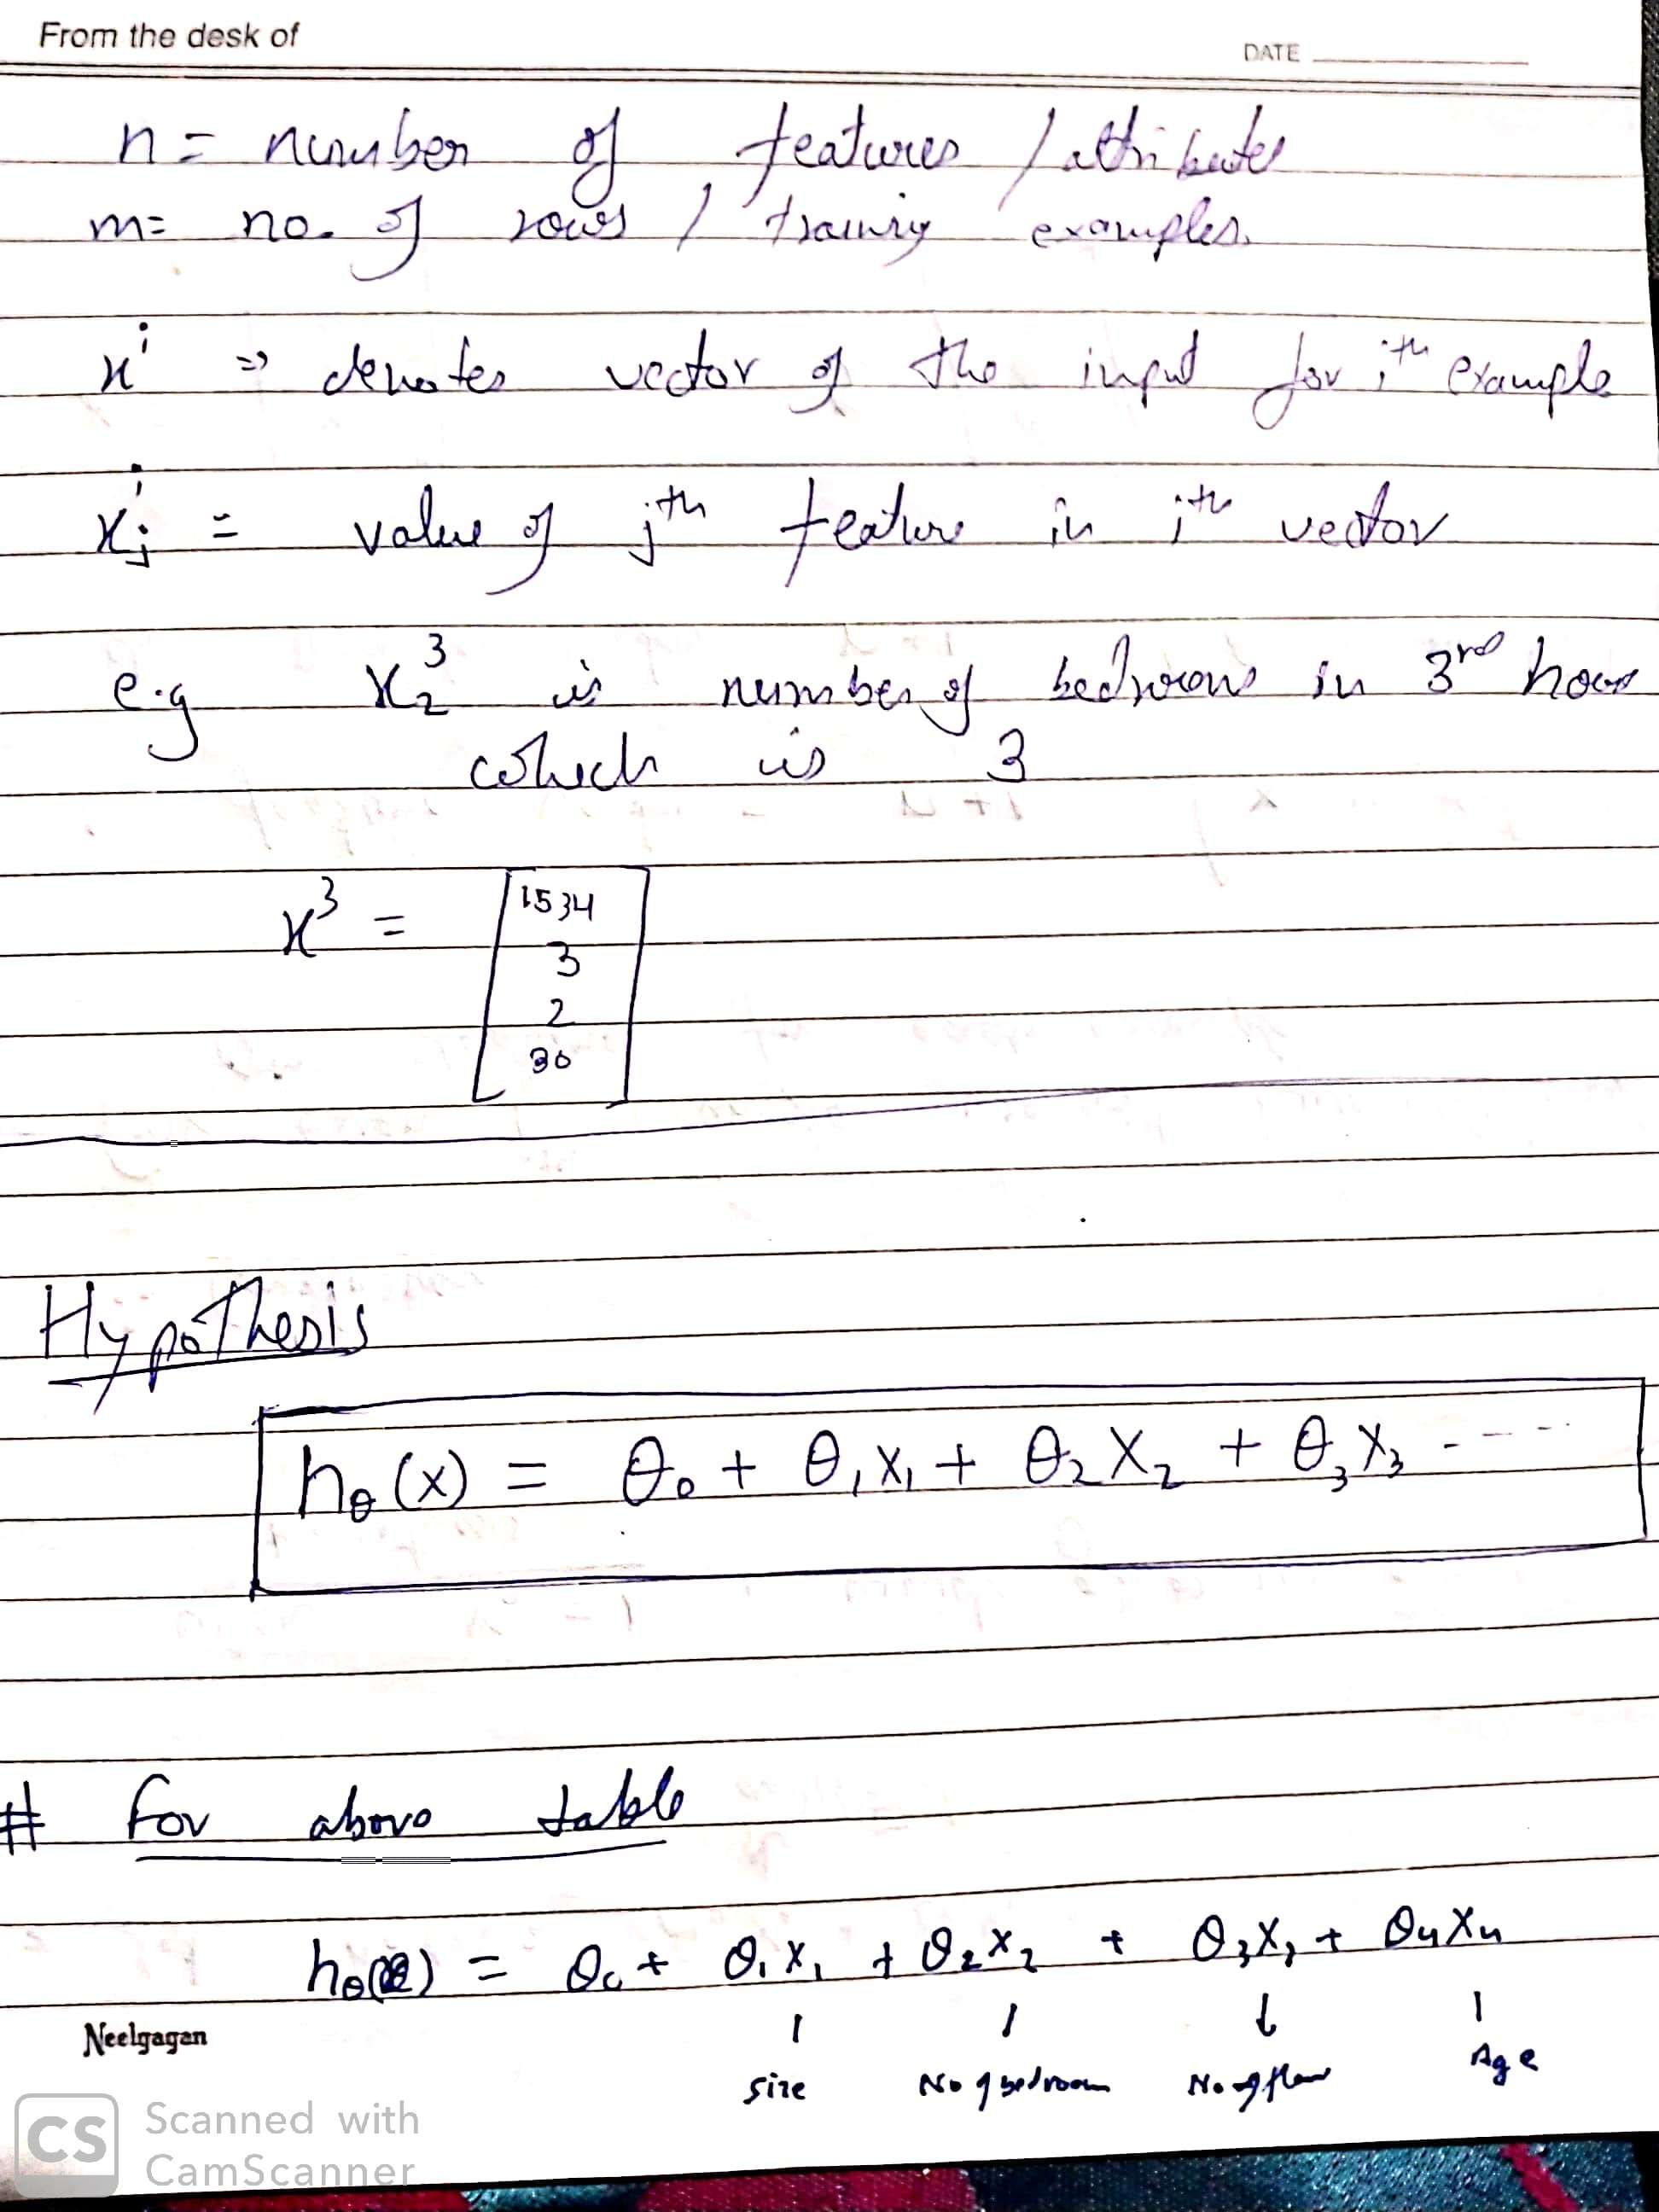 From the desk of
DATE
n = number of features / attributes
m = no. of rows / training examples.
xⁱ => denotes vector of the input for iᵗʰ example
xⱼⁱ = value of jᵗʰ feature in iᵗʰ vector
e.g x₂³ is number of bedrooms in 3ʳᵈ house
which is 3
x³ = [1534
3
2
30]
Hypothesis
hθ(x) = θ₀ + θ₁x₁ + θ₂x₂ + θ₃x₃ - - - -
# For above table
hθ(x) = θ₀ + θ₁x₁ + θ₂x₂ + θ₃x₃ + θ₄x₄
size No of bedroom No of floor Age
Neelgagan
CS Scanned with
CamScanner